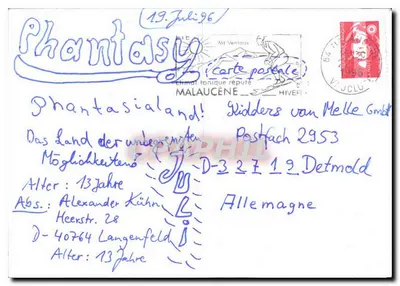 (19. Juli 96)
Phantasy
Mt Ventoux
(carte postale)
Climat tonique réputé
MALAUCÈNE HIVER
Phantasialand!
Das Land der unbegrenzten
Möglichkeiten!
Alter: 13 Jahre
Abs.: Alexander Kühn
Heerstr. 28
D-40764 Langenfeld
Alter: 13 Jahre
Juli
Kidders van Melle GmbH
Postfach 2953
D-32719 Detmold
Allemagne